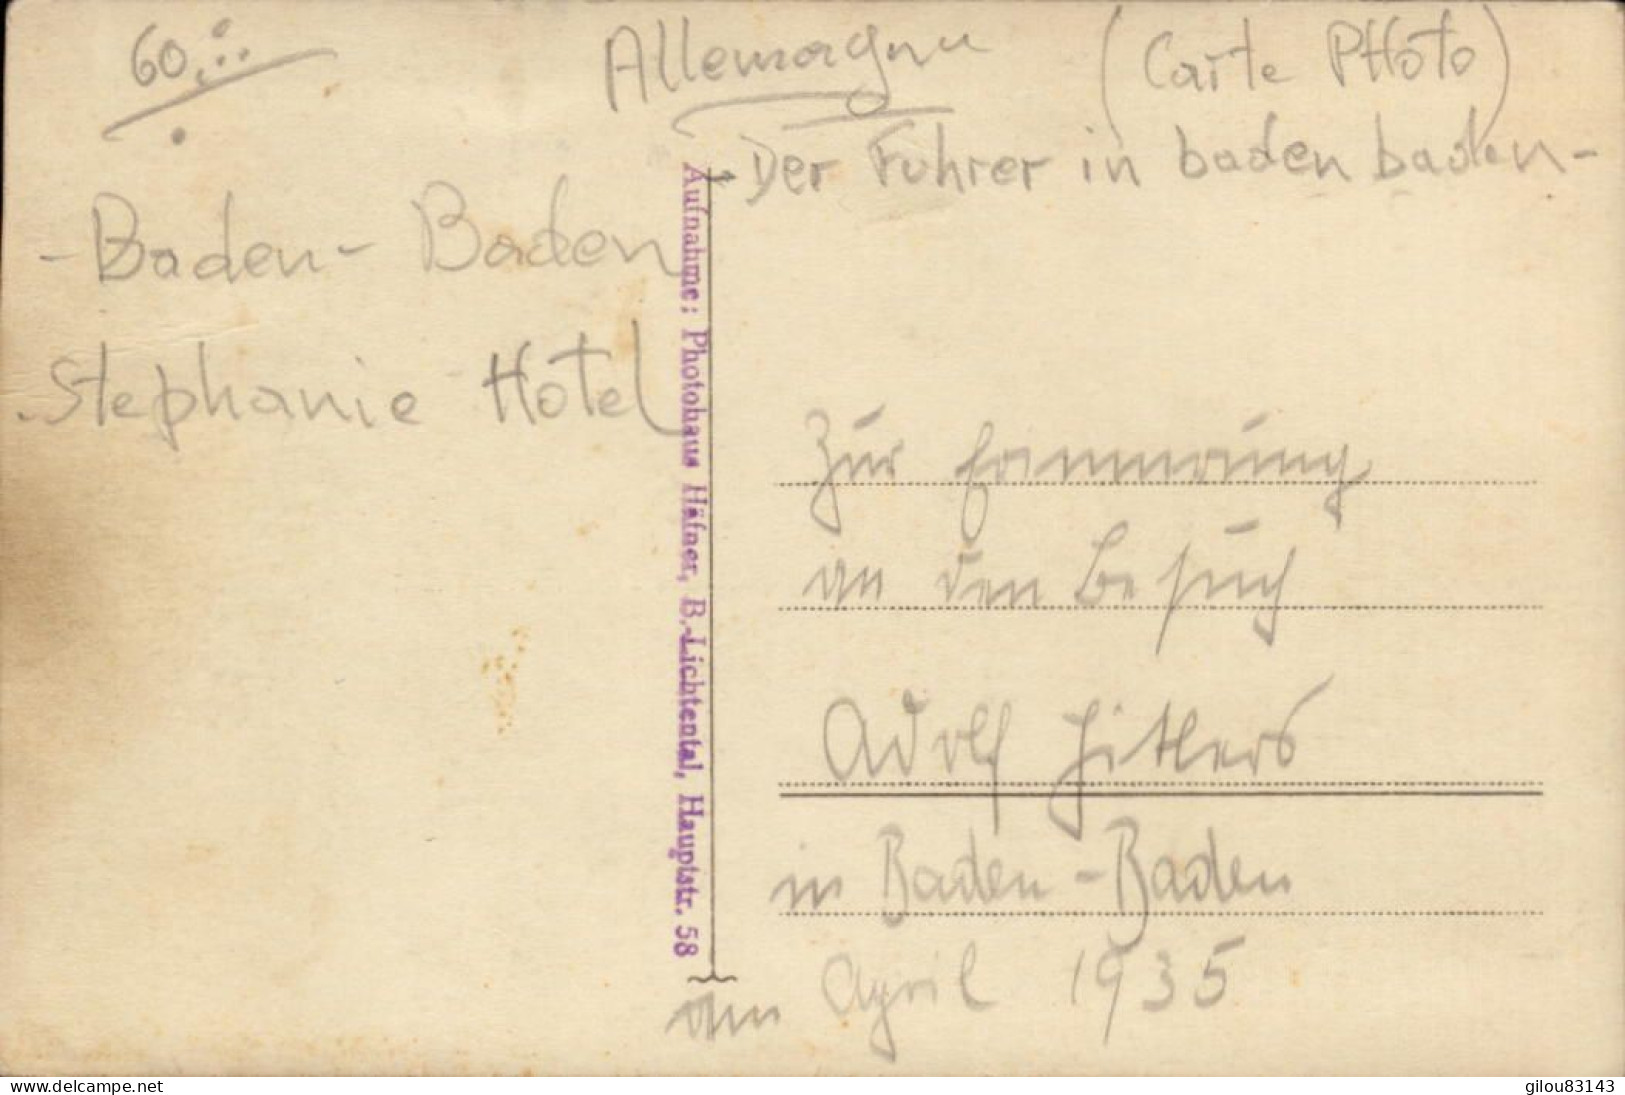 60.
Allemagne (Carte PHoto)
Der Fuhrer in baden baden-
- Baden - Baden
Stephanie Hotel
Aufnahme: Photohaus Häfner, B.-Lichtental, Hauptstr. 58
Zur Erinnerung
an den Besuch
Adolf Hitlers
in Baden-Baden
am April 1935
www.delcampe.net
gilou83143